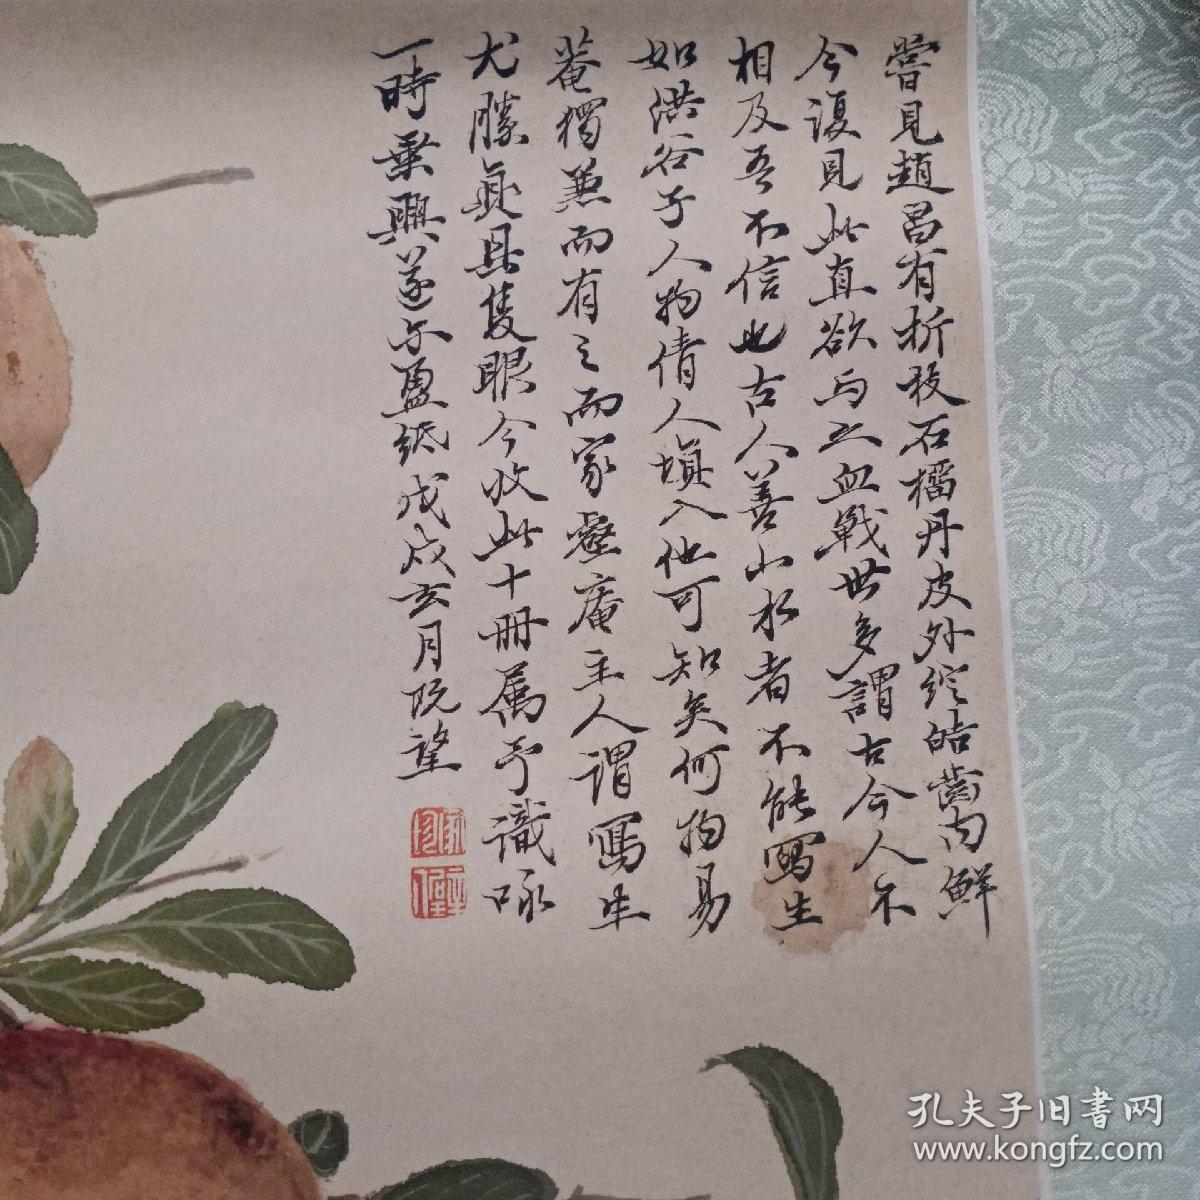 嘗見趙昌有折枝石榴丹皮外綻皓齒內鮮
今復見此直欲与之血戰世多謂古今人不
相及吾不信也古人善山水者不能寫生
如洪谷子人物倩人填入他可知矣何物易
菴獨兼而有之而家壑庵主人谓寫生
尤勝真具隻眼今收此十冊属予識咏
一時乗興遂尔盈紙戊戌亥月阮望
孔夫子旧書网
www.kongfz.com